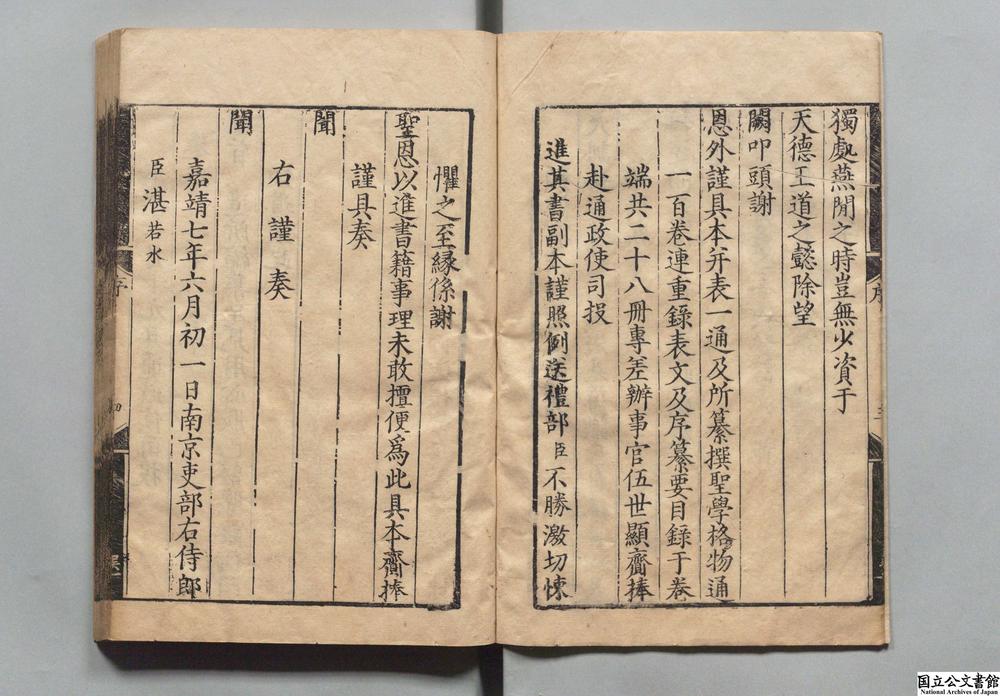 獨處燕閒之時豈無少資于
天德王道之懿除望
闕叩頭謝
恩外謹具本并表一通及所纂撰聖學格物通
一百卷連重錄表文及序纂要目錄于卷
端共二十八冊專差辦事官伍世顯齎捧
赴通政使司投
進其書副本謹照例送禮部臣不勝激切悚
懼之至緣係謝
聖恩以進書籍事理未敢擅便爲此具本齎捧
謹具奏
聞
右謹奏
聞
嘉靖七年六月初一日南京吏部右侍郎
臣湛若水
序
四
国立公文書館
National Archives of Japan